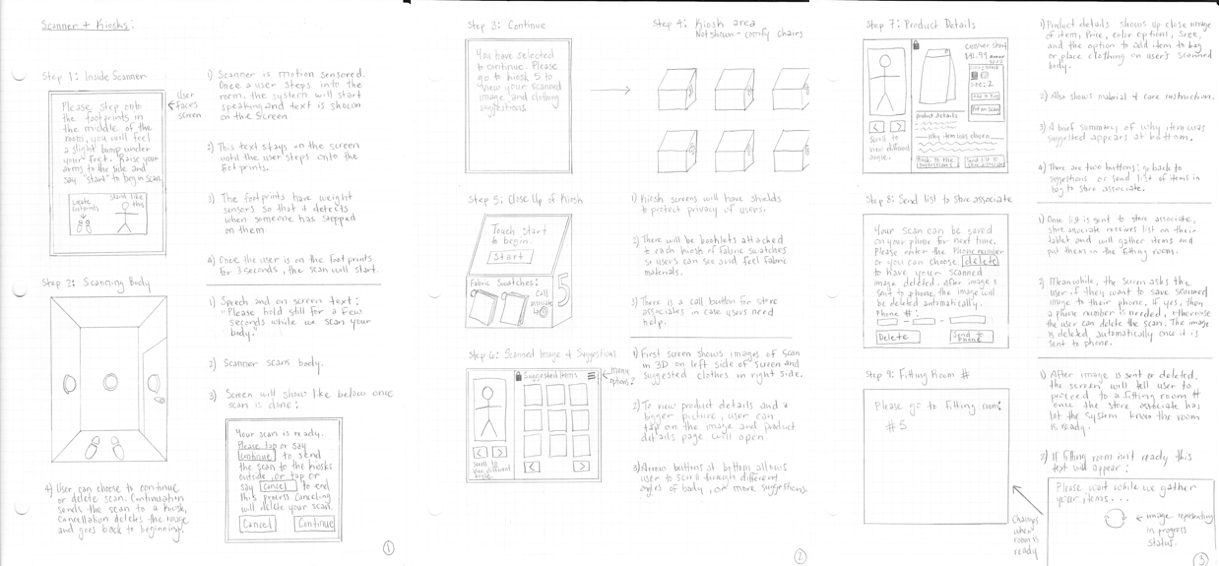 Scanner + Kiosks:
Step 1: Inside Scanner
Please step onto
the footprints in
the middle of the
room, you will feel
a slight bump under
your feet. Raise your
arms to the side and
say "start" to begin scan.
Locate
footprints
Stand like
this
User
faces
screen
1) Scanner is motion sensored.
Once a user steps into the
room, the system will start
speaking and text is shown
on the screen.
2) This text stays on the screen
until the user steps onto the
footprints.
3) The footprints have weight
sensors so that it detects
when someone has stepped
on them.
4) Once the user is on the footprints
for 3 seconds, the scan will start.
Step 2: Scanning Body
1) Speech and on screen text:
"Please hold still for a few
seconds while we scan your
body."
2) Scanner scans body.
3) Screen will show like below once
scan is done:
Your scan is ready.
Please tap or say
continue to send
the scan to the kiosks
outside, or tap or
say cancel to end
this process. Canceling
will delete your scan.
Cancel
Continue
4) User can choose to continue
or delete scan. Continuation
sends the scan to a kiosk,
cancellation deletes the image
and goes back to beginning.
1
Step 3: Continue
You have selected
to continue. Please
go to kiosk 5 to
view your scanned
image and clothing
suggestions.
Step 4: Kiosk area
Not shown - comfy chairs
Step 5: Close Up of Kiosk
Touch Start
to begin.
Start
Fabric Swatches:
Call
associate
5
1) Kiosk screens will have shields
to protect privacy of users.
2) There will be booklets attached
to each kiosk of fabric swatches
so users can see and feel fabric
materials.
3) There is a call button for store
associates in case users need
help.
Step 6: Scanned Image + Suggestions
Suggested Items
Scroll to
view different
angle
menu
options?
1) First screen shows images of scan
in 3D on left side of screen and
suggested clothes on right side.
2) To view product details and a
bigger picture, user can
tap on the image and product
details page will open.
3) Arrow buttons at bottom allows
user to scroll through different
angles of body, or more suggestions.
2
Step 7: Product Details
Scroll to
view different
angle.
product details
Why item was chosen
Back to the
suggestions
Send list to
store associate
1) Product details shows up close image
of item, Price, color options, Size,
and the option to add item to bag
or place clothing on user's scanned
body.
2) Also shows material + care instruction.
3) A brief summary of why item was
suggested appears at bottom.
4) There are two buttons: go back to
suggestions or send list of items in
bag to store associate.
Step 8: Send list to store associate
Your scan can be saved
on your phone for next time.
Please enter the Phone number
or you can choose delete
to have your scanned
image deleted. After image is
sent to phone, the image will
be deleted automatically.
Phone #:
Delete
Send to
Phone
1) Once list is sent to store associate,
store associate receives list on their
tablet and will gather items and
put them in the fitting room.
2) Meanwhile, the screen asks the
user if they want to save scanned
image to their phone. If yes, then
a phone number is needed, otherwise
the user can delete the scan. The image
is deleted automatically once it is
sent to phone.
Step 9: Fitting Room #
Please go to fitting room
#5
Changes
when
room is
ready
1) After image is sent or deleted,
the screen will tell user to
proceed to a fitting room #
once the store associate has
let the system know the room
is ready.
2) If fitting room isn't ready this
text will appear:
Please wait while we gather
your items...
image representing
in progress
status.
3